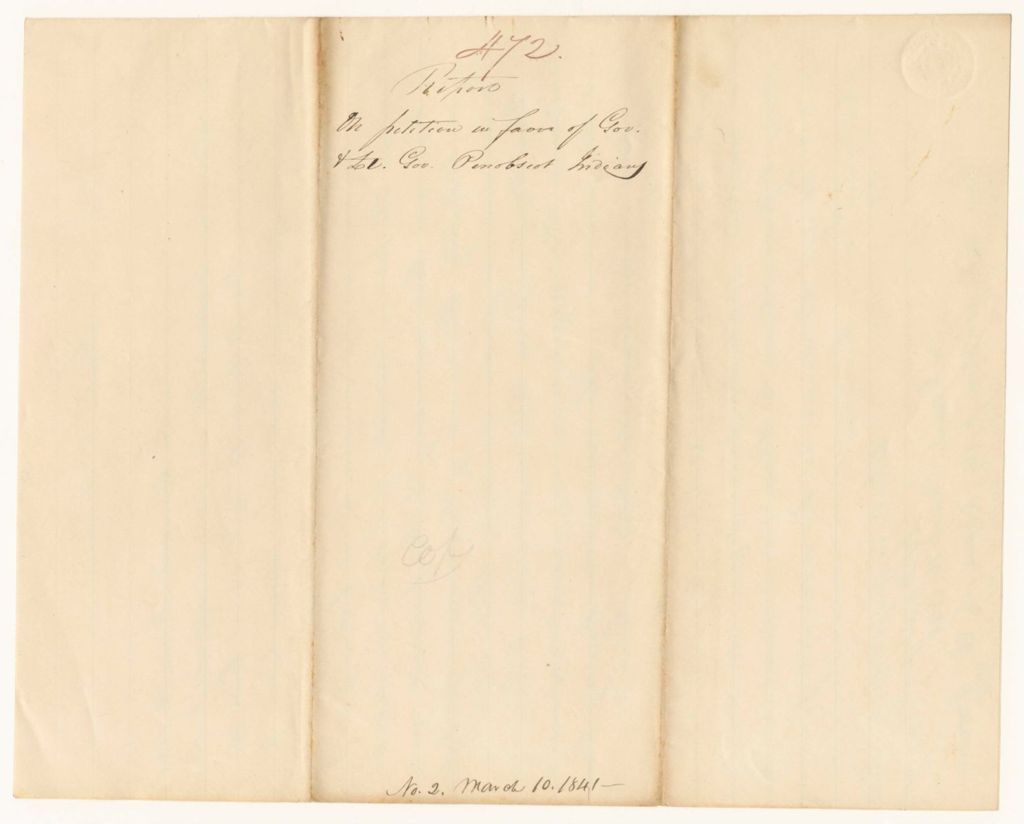 472.
Report
On petition in favor of Gov.
& Lt. Gov. Penobscot Indians
Cop
No. 2. March 10. 1841—